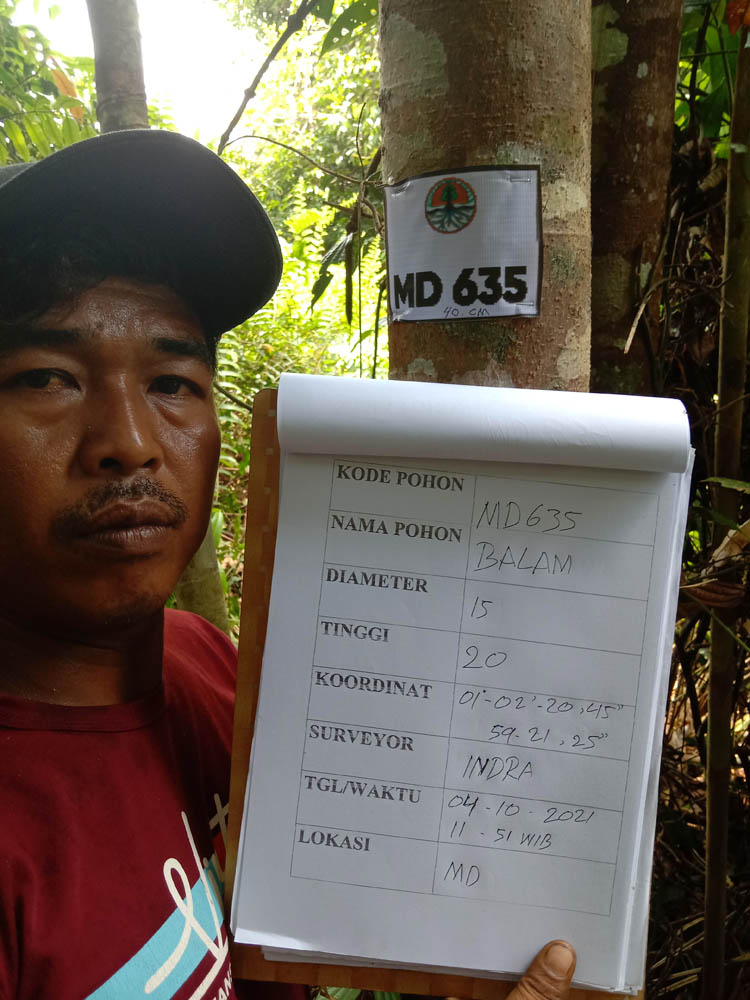 MD 635
40. CM
KODE POHON MD635
NAMA POHON BALAM
DIAMETER 15
TINGGI 20
KOORDINAT 01°-02'-20,45"
59-21,25"
SURVEYOR INDRA
TGL/WAKTU 04-10-2021
11-51 WIB
LOKASI MD